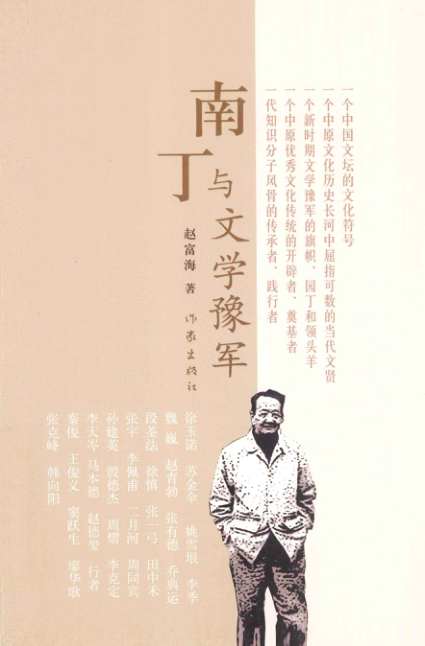 一个中国文坛的文化符号
一个中原文化历史长河中屈指可数的当代文贤
一个新时期文学豫军的旗帜、园丁和领头羊
一个中原优秀文化传统的开辟者、奠基者
一代知识分子风骨的传承者、践行者
南丁
与文学豫军
赵富海 著
作家出版社
徐玉诺 苏金伞 姚雪垠 李季
魏巍 赵青勃 张有德 乔典运
段荃法 徐慎 张一弓 田中禾
张宇 李佩甫 二月河 周同宾
孙建英 殷德杰 周熠 李克定
李天岑 马本德 赵德玺 行者
秦俊 王俊义 窦跃生 廖华歌
张克峰 韩向阳